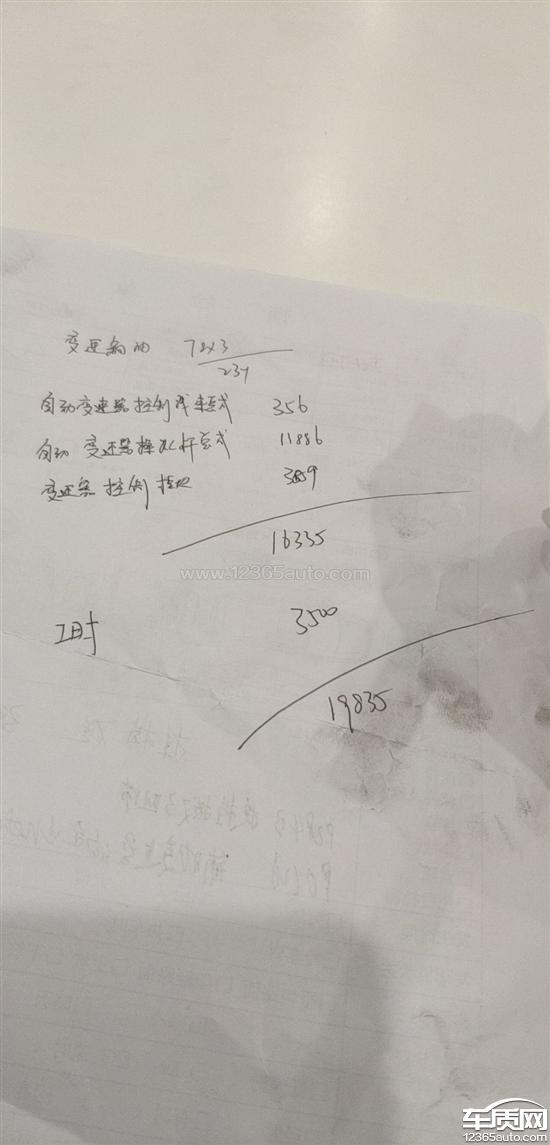 变速箱油 78×3
234
自动变速器控制线束总式 356
自动变速器换挡杆总式 11886
变速器控制模块 3859
16335
www.12365auto.com
工时 3500
19835
车质网
12365auto.com